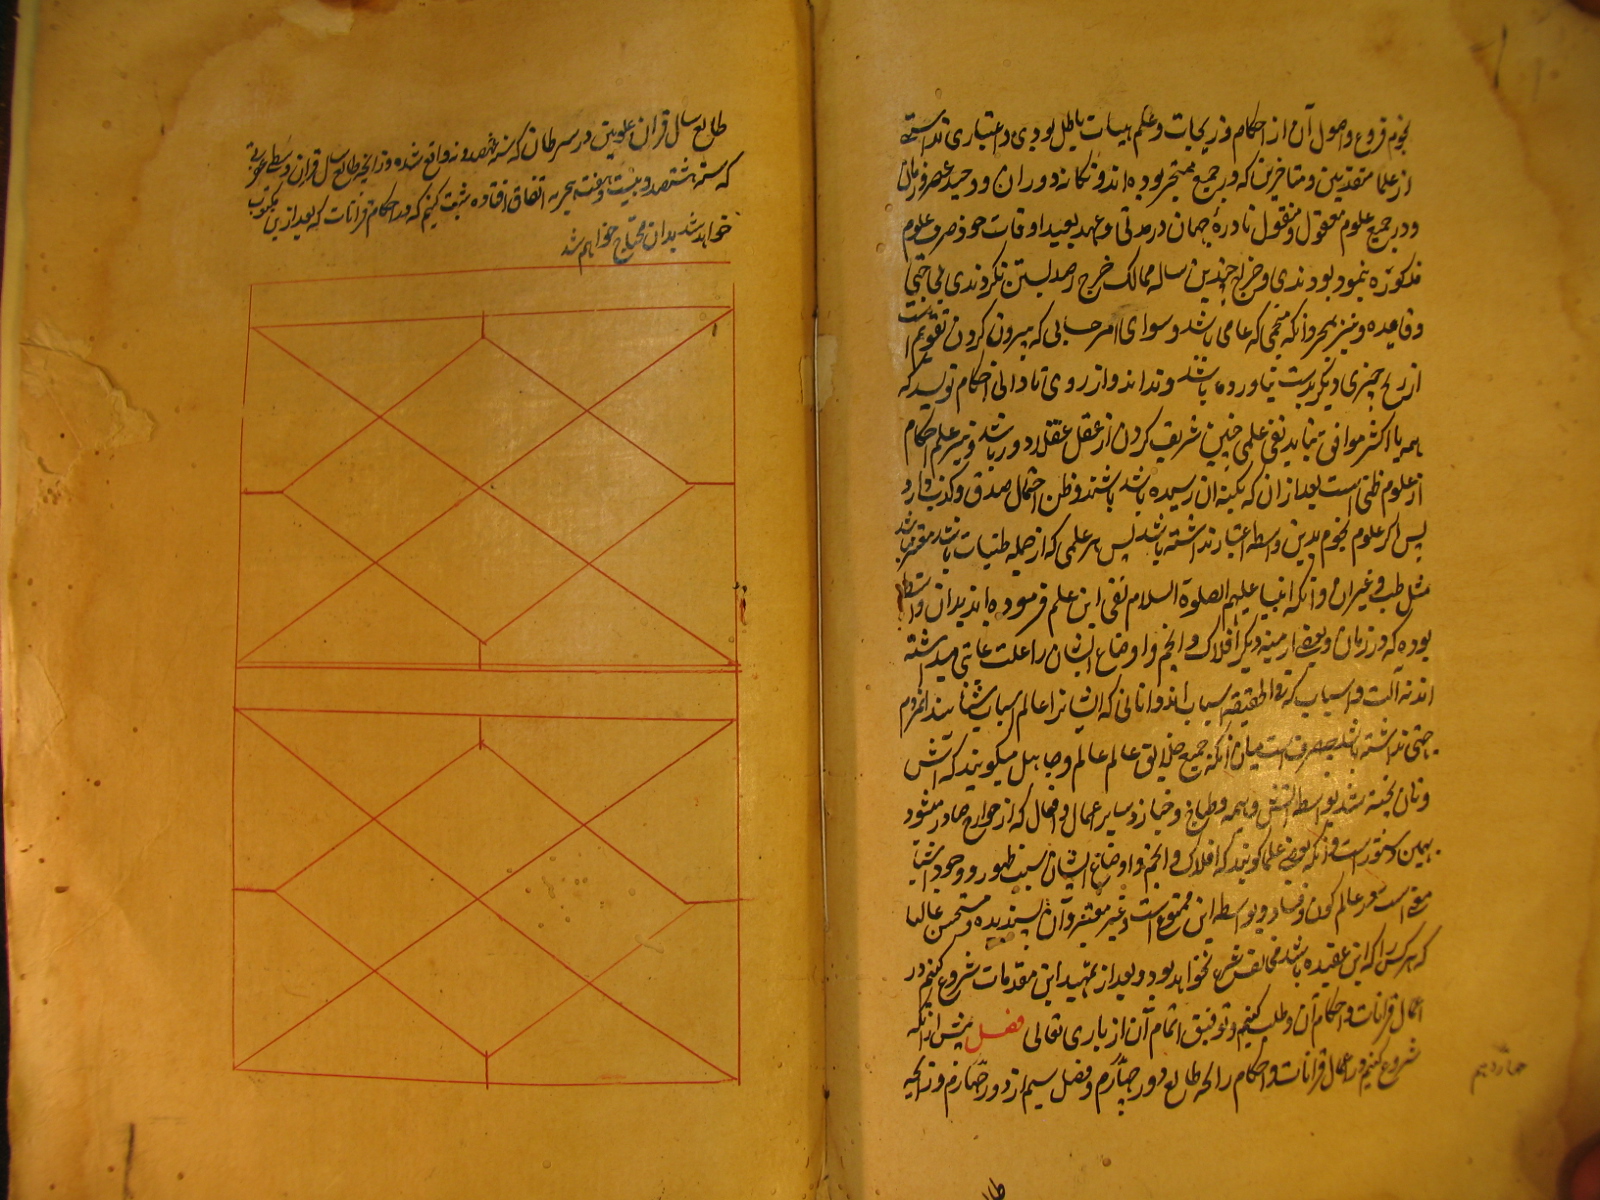 نجوم فروع و اصول آن از احکام و زیجات و علم هیات باطل بودی و اعتباری نداشتی
از علما متقدمین و متاخرین که در جمیع متبحر بوده اند و یگانه دوران و وحید عصر و زمان
و در جمیع علوم معقول و منقول نادره جهان در مدتی و عهد بعید اوقات خود صرف علوم
مذکوره ننمود بودندی و خرج چندین ساله ممالک خرج رصد بستن نکردندی بی حجتی
و قاعده و نیز بمجرد انکه منجمی که عامی باشد و سوای امر حسابی که بیرون کردن تقویم است
از زیج چیزی دیگر بدست نیاورده باشد و نداند و از روی نادانی احکام نویسد که
همه یا اکثر موافق نیاید نفی علمی چنین شریف کردن از عقل عقلا دور باشد و نیز علم احکام
از علوم ظنی است بعد از ان که بکنه ان رسیده باشد باشند و ظن احتمال صدق و کذب دارد
پس اکر علوم نجوم بدین واسطه اعتبار نداشته باشد پس هر علمی که از جمله ظنیات باشد معتبر نباشد
مثل طب و غیر ان و انکه انبیا علیهم الصلوة السلام نفی این علم فرموده اند بدان واسطه
بوده که در زمان و ازمنه دیگر افلاک و انجم و اوضاع ایشان را علت غائی میداشته
اند نه آلت و اسباب که اسباب اند و انانی که ایشانرا عالم اسباب شناسند
حتی نداشته باشد میان انکه جمیع خلایق عالم عالم و جاهل میکویند که آتش
و نان پخته شد بواسطه اتش و هیمه و طباخ و خباز و سایر اعمال و افعال که از جوارح صادر میشود
بهمین دستور است و انکه بعضی علما کویند که افلاک و انجم و اوضاع ایشان سبب ظهور و وجود اشیا
است در عالم کون و فساد و بواسطه این ممنوع است و غیر معتبر و آن پسندیده و مستحسن غالبا
که هر کس را که این عقیده باشد مخالف شرع نخواهد بود و بعد از تمهید این مقدمات شروع کنیم در
اعمال قرانات و احکام آن و طلب کنیم توفیق اتمام آن از باری تعالی فصل پیش از انکه
شروع کنیم در اعمال قرانات و احکام زایجه طالع دور چهارم و فصل سیم از دور چهارم و زایجه
طالع سال قران علویین در سرطان که سنه واقع شده و زایجه طالع سال قران وسطی
که سنه هشتصد و بیست و هفت هجریه اتفاق افتاده ثبت کنیم که در احکام قرانات که بعد ازین مکتوب
خواهد شد بدان محتاج خواهیم شد